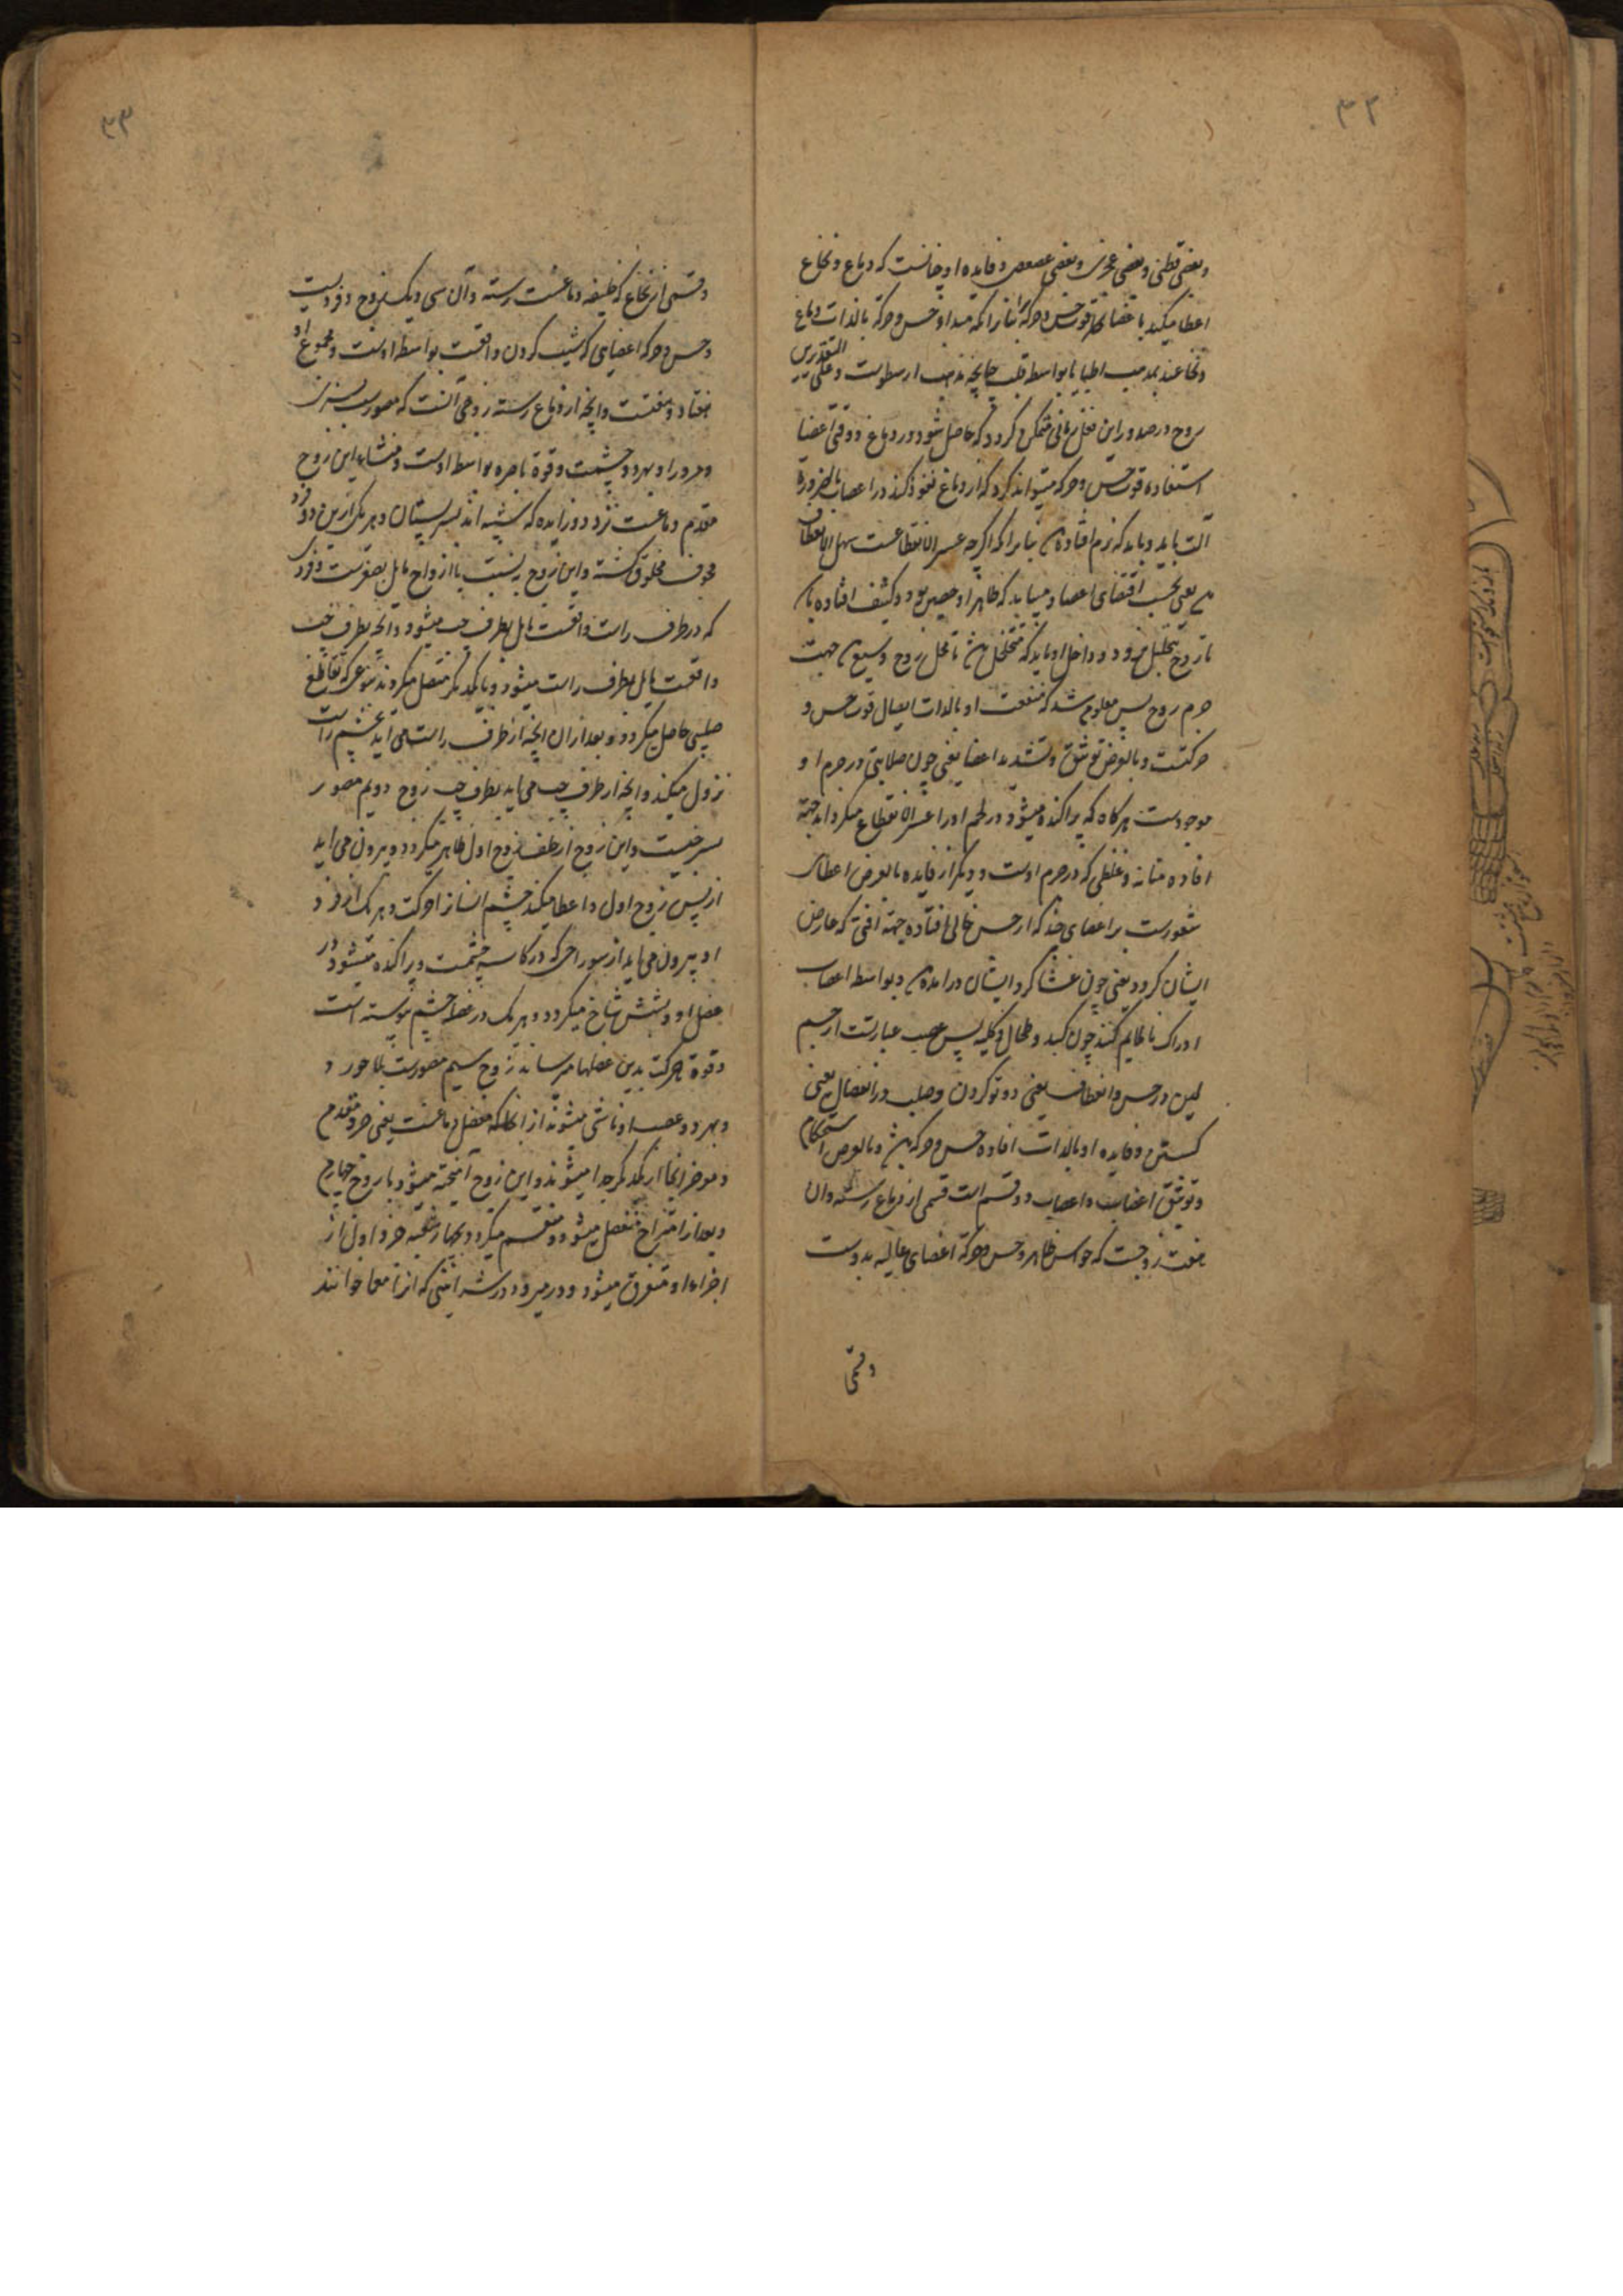 ۳۲
و بعضی قطنی و بعضی عجزی و بعضی عصعصی و فایده او چنانست که دماغ و نخاع
اعطا میکنند باعضا بواسطه قوت حس و حرکة بنابر آنکه مبداء حس و حرکة بالذات دماغ
و نخاعند بمذهب اطبا یا بواسطه قلب چنانچه مذهب ارسطوست و علی التقدیرین
روح در صدور این فعل متمکن گردد که حاصل شود در دماغ و وقتی اعضا
استفاده قوت حس و حرکه میتوانند کرد که از دماغ نفوذ کند در اعصاب بالضروره
آلت باید و باید که نرم افتاده بنابر آنکه اگرچه عسر الانقطاعست سهل الانعطاف
یعنی بحسب اقتضای اعضا و میباید که ظاهر او حصین بود و کثیف افتاده
تا روح بتحلیل نرود و داخل او باید که متخلخل تا محل روح وسیع جهت
جرم روح پس معلوم شد که منفعت او بالذات ایصال قوت حس و
حرکتست و بالعرض توثیق و تشدید اعضا یعنی چون صلابتی در جرم او
موجودست هرگاه که پراکنده میشود در لحم او را عسر الانقطاع میگرداند جهة
افاده متانه و غلظی که در جرم اوست و دیگر از فایده بالعرض اعطای
شعورست بر اعضای چند که از حس خالی افتاده جهة آفتی که عارض
ایشان گردد یعنی چون غشا گرد ایشان درآمده و بواسطه اعصاب
ادراک ناملایم کنند چون کبد و طحال و کلیه پس عصب عبارتست از جسم
لین در حس و انعطاف یعنی دو تو کردن و صلب در انفصال یعنی
گسستن و فایده او بالذات افاده حس و حرکه و بالعرض استحکام
و توثیق اعضاست و اعصاب دو قسم است قسمی از دماغ رسته و آن
هفت زوجست که حواس ظاهر و حس و حرکة اعضای عالیه بدوست
و قسمی
۳۳
و قسمی از نخاع که خلیفه دماغست رسته و آن سی و یک زوج و فردیست
و حس و حرکه اعضایی که شیب گردن واقعست بواسطه اوست و مجموع او
هفتاد و هفتست و آنچه از دماغ رسته زوجی آنست که مصورست بسبزی
و مرور او بهر دو چشمست و قوة باصره بواسطه اوست و منشاء این زوج
مقدم دماغست نزد دو زایده که شبیه اند بسر پستان و هر یک ازین دو فرد
مجوف مخلوق گشته و این زوج به نسبت با ازواج مایل بصغرست و فردی
که در طرف راست واقعست مایل بطرف چپ میشود و آنچه بطرف چپ
واقعست مایل بطرف راست میشود و بایکدیگر متصل میگردند بنوعی که تقاطع
صلیبی حاصل میگردد و بعد از آن آنچه از طرف راست می آید بچشم راست
نزول میکند و آنچه از طرف چپ می آید بطرف چپ زوج دویم مصور
بسرخیست و این زوج از خلف زوج اول ظاهر میگردد و بیرون می آید
از پس زوج اول و اعطا میکند چشم انسان را حرکت و هر یک از فرد
او بیرون می آید از سوراخی که در کاسه چشمست و پراکنده میشود در
عضل او و شش شاخ میگردد و هر یک در عضلة چشم پیوسته است
و قوة حرکت بدین عضلها میرساند زوج سیم مصورست بلاجورد
و هر دو عصب او ناشی میشوند از آنجا که مفصل دماغست یعنی جزو مقدم
و موخر آنجا از یکدیگر جدا میشوند و این زوج آمیخته میشود با زوج چهارم
و بعد از امتزاج منفصل میشود و منقسم میگردد بچهار شعبه جزو اول از
اجزاء او متفرق میشود و در میرود در شرایینی که آنرا معا خوانند